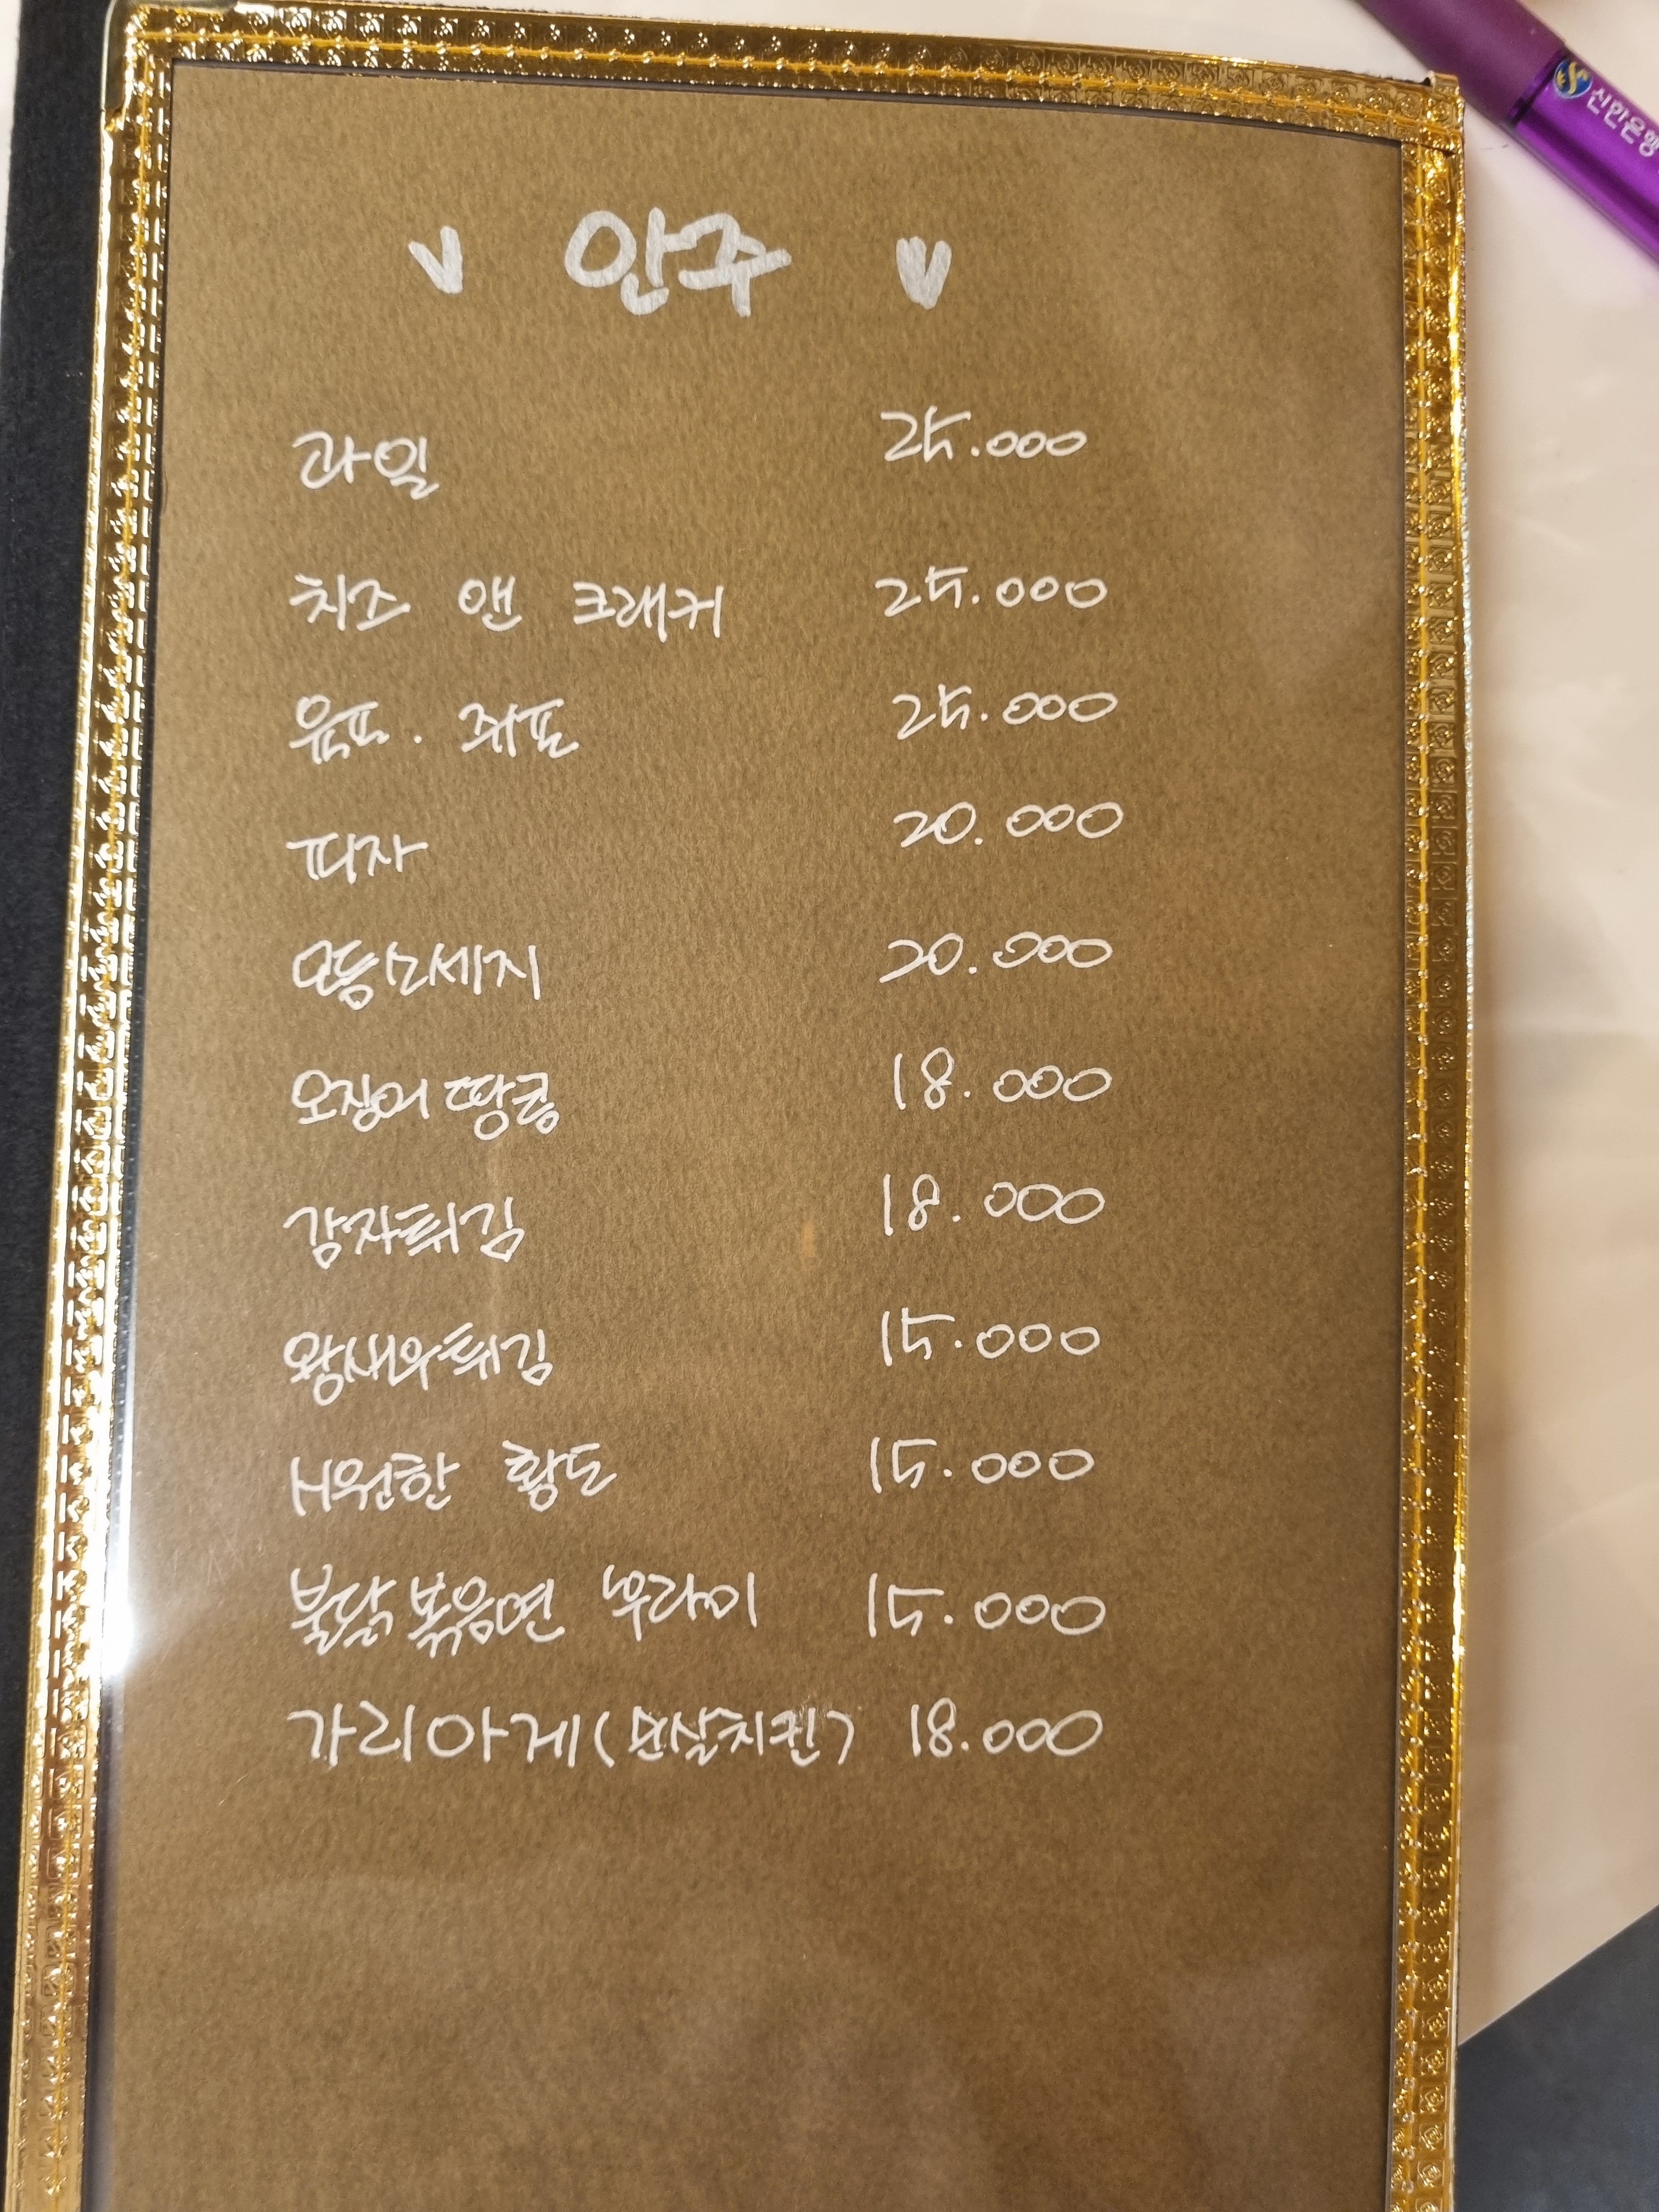 안주
과일 25.000
치즈 앤 크래커 25.000
육포. 쥐포 25.000
피자 20.000
모듬소세지 20.000
오징어 땅콩 18.000
감자튀김 18.000
왕새우튀김 15.000
H원한 황도 15.000
불닭볶음면 후라이 15.000
가라아게(순살치킨) 18.000
신한은행